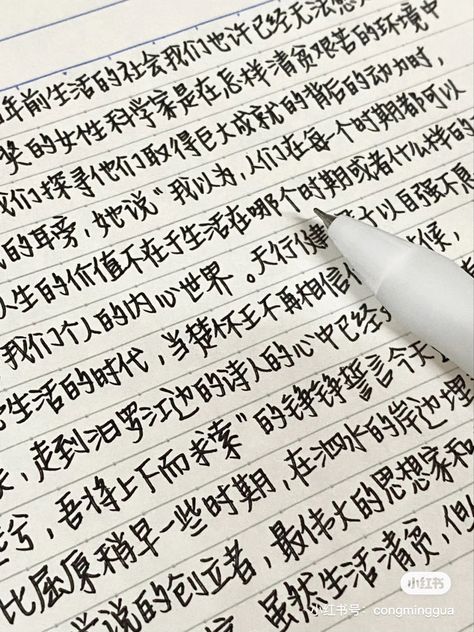 年前生活的社会我们也许已经无法想
奖的女性科学家是在怎样清贫艰苦的环境中
我们探寻他们取得巨大成就的背后的动力时，
的耳旁，她说“我以为，人们在每一个时期都可以
人生的价值不在于生活在哪个时期或者什么样的
我们个人的内心世界。天行健 子以自强不息
生活的时代，当楚怀王不再相信 候，
，走到汨罗江边的诗人的心中已经
兮，吾将上下而求索”的铮铮誓言今天
比屈原稍早一些时期，在泗水的岸边埋
学说的创立者，最伟大的思想家和
虽然生活清贫，但
小红书
小红书号：congminggua